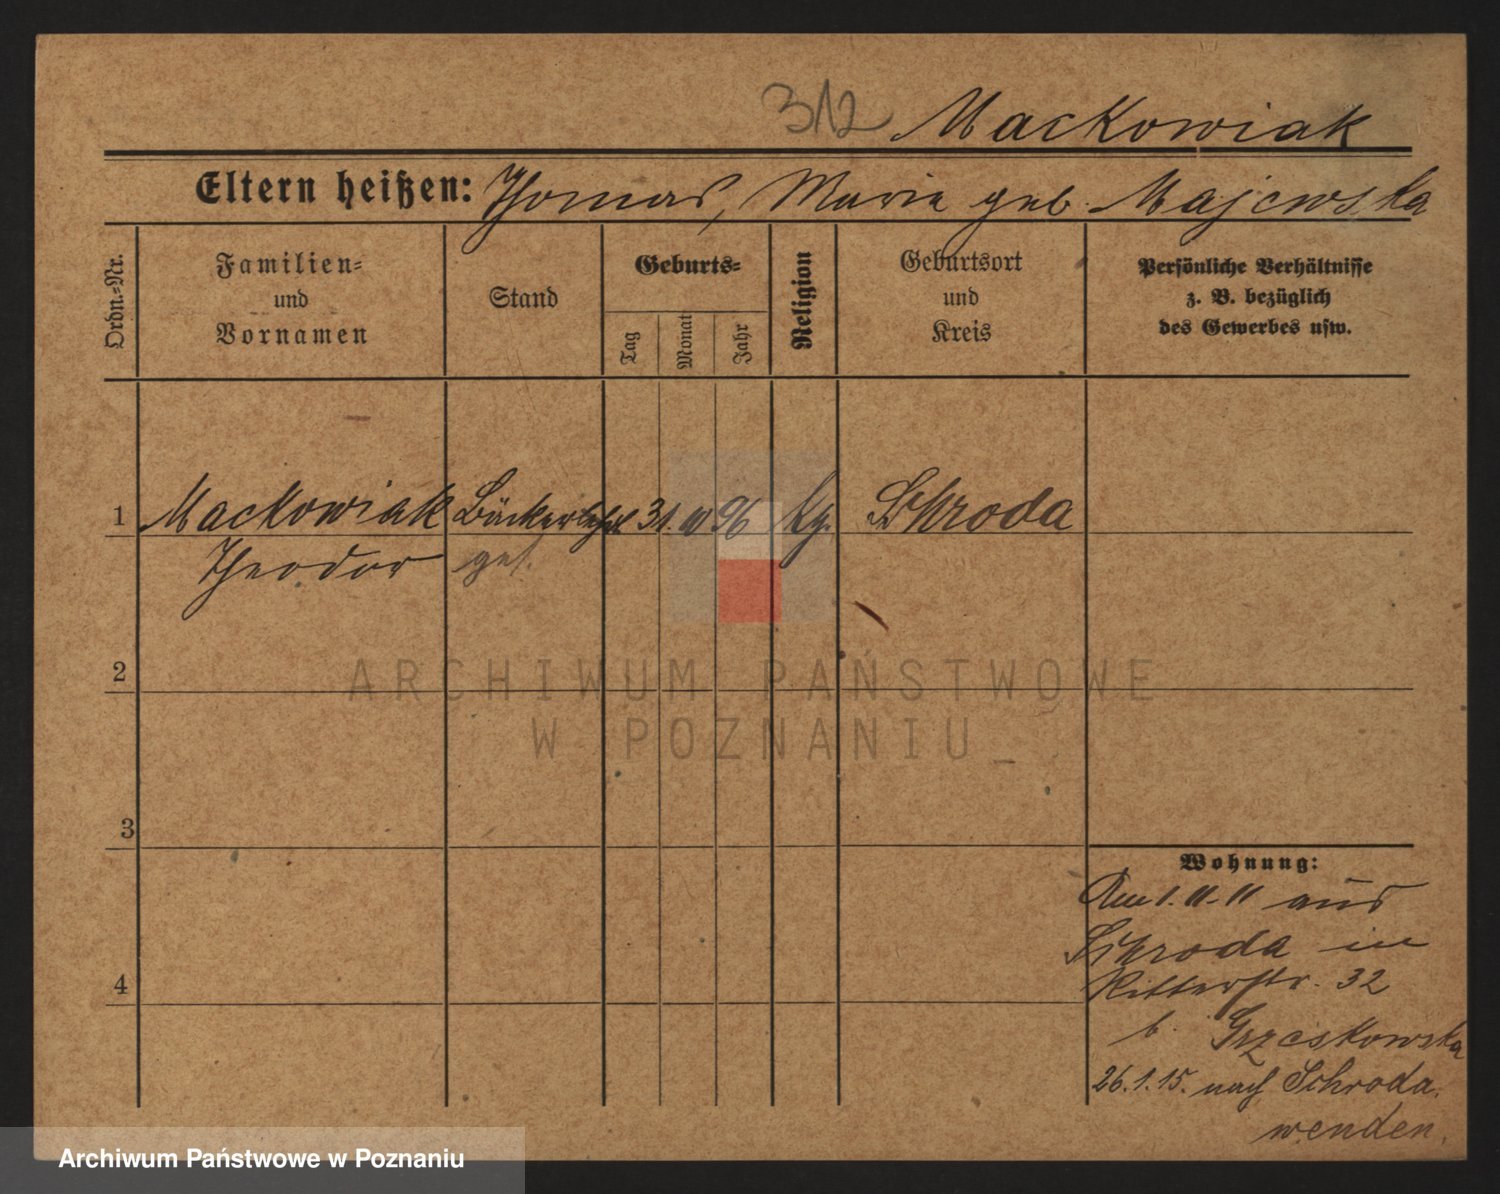 312 Mackowiak
Eltern heißen: Thomas, Marie geb. Majewska
Ordn.-Nr.
Familien-
und
Vornamen
Stand
Geburts-
Tag
Monat
Jahr
Religion
Geburtsort
und
Kreis
Persönliche Verhältnisse
z. B. bezüglich
des Gewerbes usw.
1 Mackowiak Bäckerlehrl 31. 96 kg. Schroda
Theodor
2
3
4
Wohnung:
Am 1. 11. 11 aus
Schroda in
Ritterstr. 32
b. Grzeskowska
26.1.15. nach Schroda.
wenden.
ARCHIWUM PAŃSTWOWE
W POZNANIU_
Archiwum Państwowe w Poznaniu